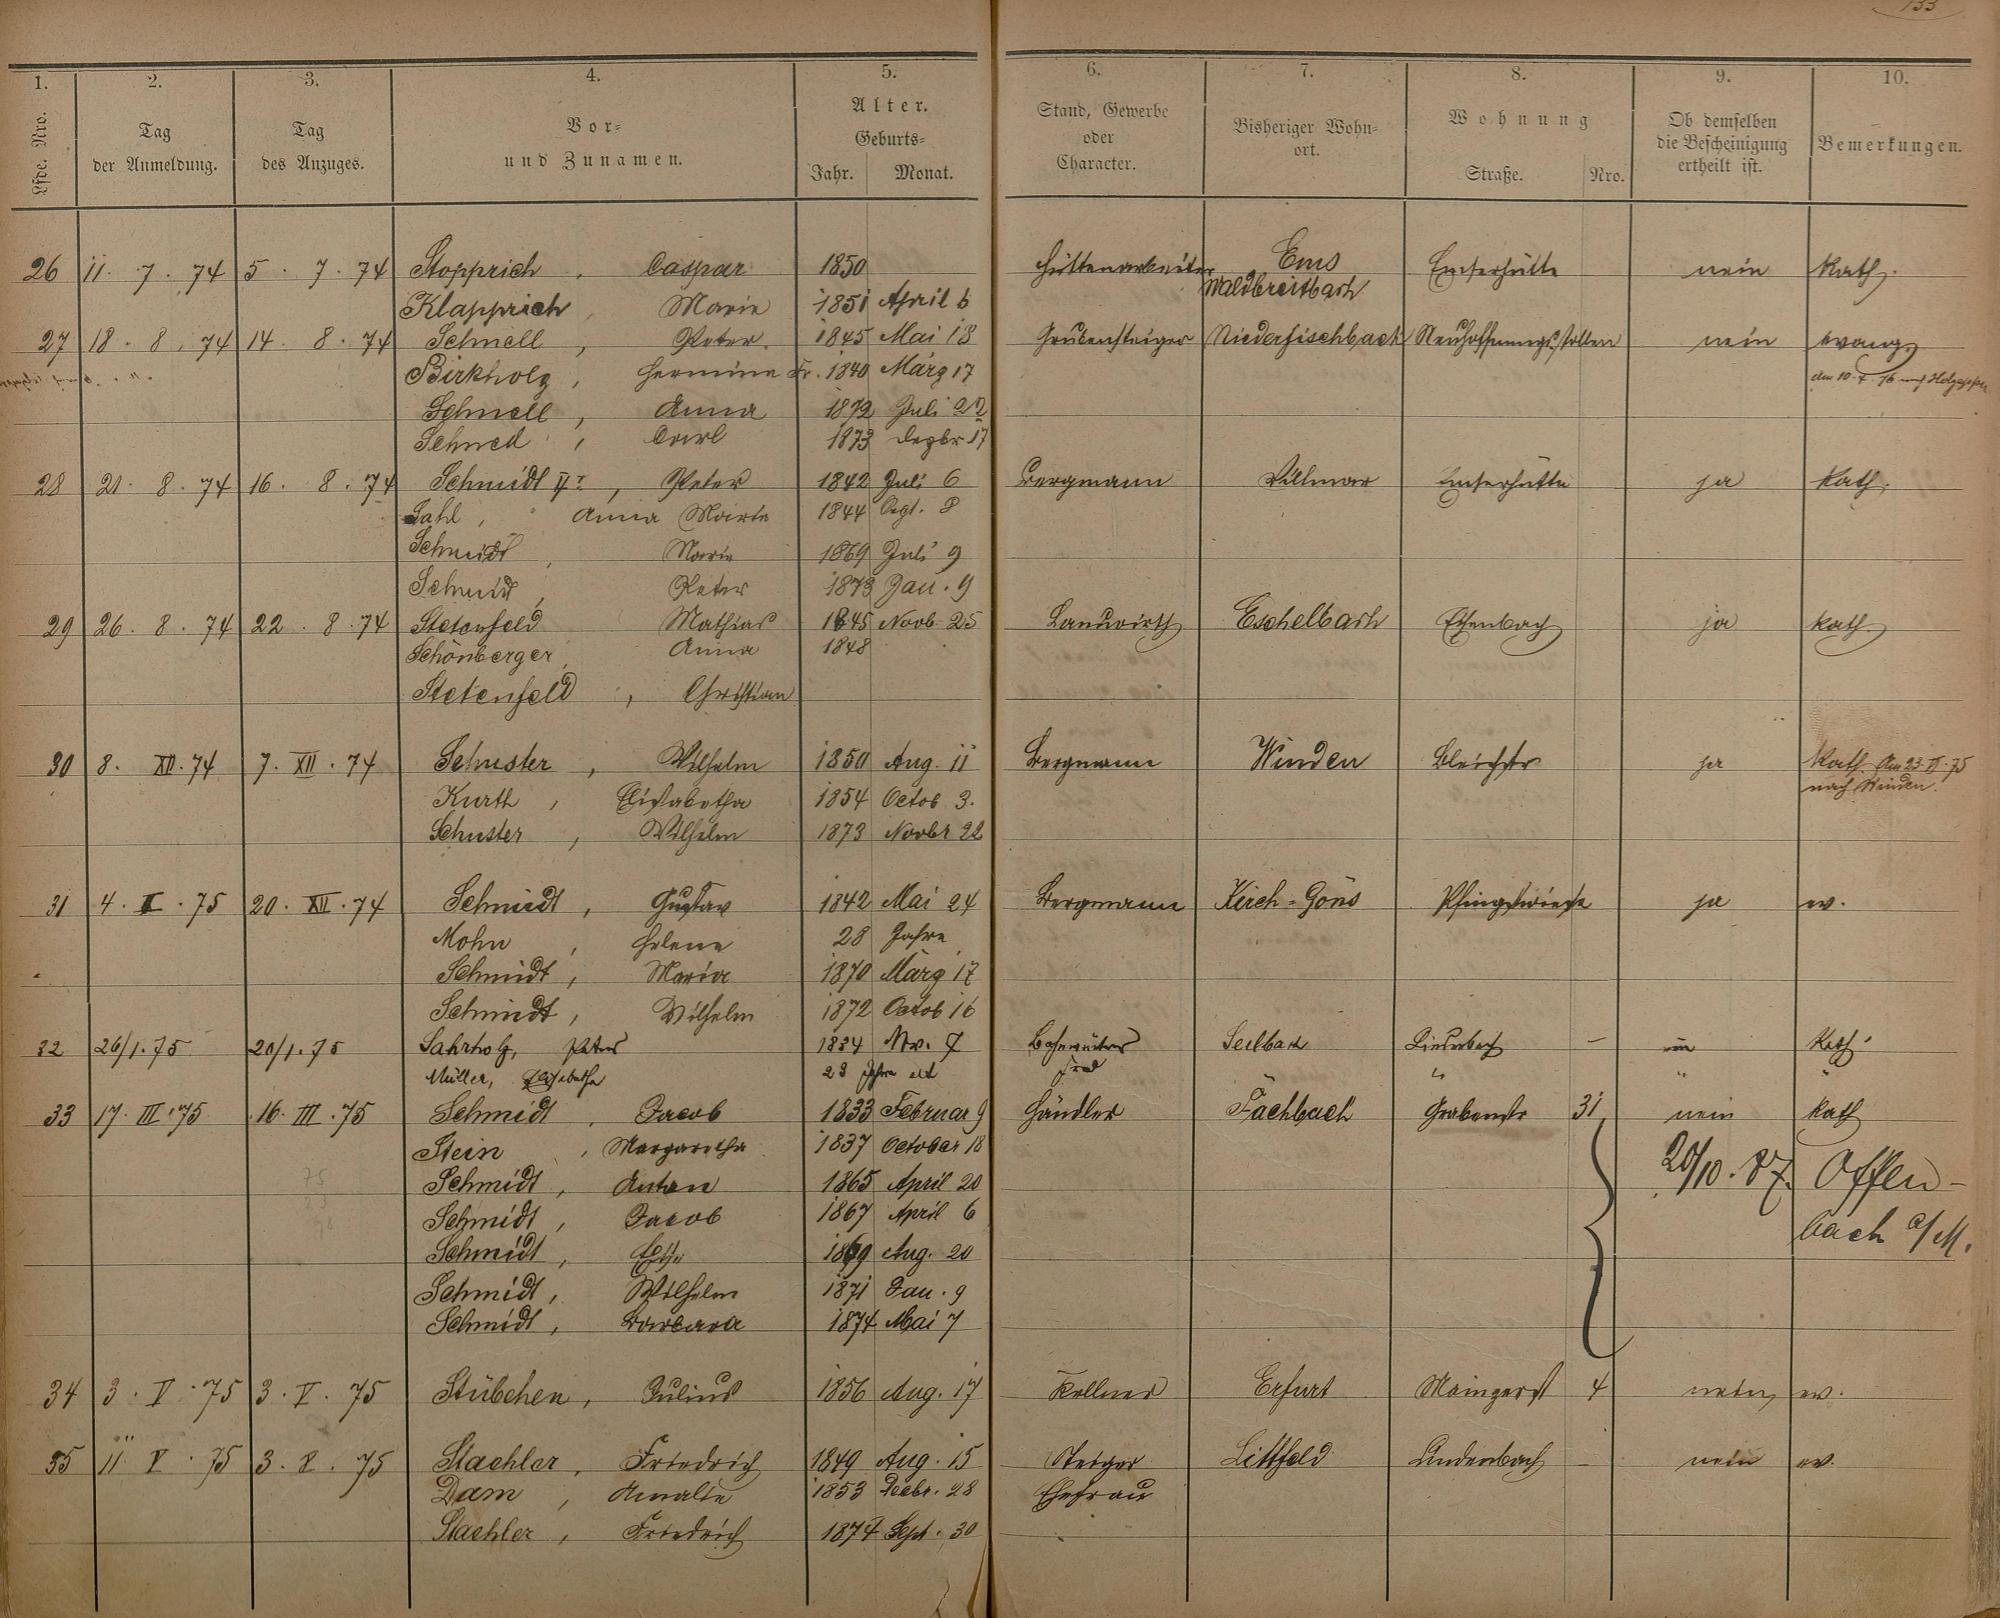 133
1. 2. 3. 4. 5. 6. 7. 8. 9. 10.
Lfde. Nro. Tag der Anmeldung. Tag des Anzuges. Vor- und Zunamen. Alter. Geburts- Jahr. Monat. Stand, Gewerbe oder Character. Bisheriger Wohn-ort. Wohnung Straße. Nro. Ob demselben die Bescheinigung ertheilt ist. Bemerkungen.
26 11. 7. 74 5. 7. 74 Stopprich, Caspar 1850 Hüttenarbeiter Ems Emserhütte nein Kath.
Klapprich, Marie 1851 April 6 Waldbreitbach
27 18. 8. 74 14. 8. 74 Schnell, Peter 1845 Mai 18 Grubensteiger Niederfischbach Neuhoffnungsstollen nein evang.
Birkholz, Hermine Fr. 1840 März 17 den 10. 4. 76 nach Holzappel
Schnell, Anna 1872 Juli 22
Schnell, Carl 1873 Dezbr 17
28 21. 8. 74 16. 8. 74 Schmidt IIr, Peter 1842 Juli 6 Bergmann Villmar Emserhütte ja Kath.
Anna Maria 1844 8
Schmidt, Marie 1869 Juli 9
Schmidt, Peter 1873 Jan. 9
29 26. 8. 74 22. 8. 74 Stetenfeld Mathias 1845 Novb. 25 Landwirth Eschelbach ja Kath.
Schönberger, Anna 1848
Stetenfeld, Christian
30 8. XII. 74 7. XII. 74 Schuster, Wilhelm 1850 Aug. 11 Bergmann Winden Bleichstr ja Kath. Am 23. II. 75
nach Winden.
Kurth, Elisabetha 1854 Octob 3.
Schuster, Wilhelm 1873 Novbr 22
31 4. I. 75 20. XII. 74 Schmidt, Gustav 1842 Mai 24 Bergmann Kirch-Göns Pfingstwiese ja ev.
Mohn, Helene 28 Jahre
Schmidt, Maria 1870 März 17
Schmidt, Wilhelm 1872 Octob 16
32 26/1. 75 20/1. 75 Peter 1834 Nov. 7 Seelbach - nein Kath.
Müller, Elisabetha 23 Jahre alt Frau " " "
33 17. III. 75 16. III. 75 Schmidt, Jacob 1833 Februar 9 Händler Fachbach Grabenstr 31 nein Kath
Stein, Margaretha 1837 October 18
Schmidt, Anton 1865 April 20 20/10. 87. Offen-
Schmidt, Jacob 1867 April 6 bach a/M.
Schmidt, 1869 Aug. 20
Schmidt, Wilhelm 1871 Jan. 9
Schmidt, Barbara 1874 Mai 7
34 3. V. 75 3. V. 75 Stübchen, Julius 1856 Aug. 17 Kellner Erfurt Mainzerst 4 nein ev.
35 11. V. 75 3. V. 75 Stachler, Friedrich 1849 Aug. 15 Steiger Littfeld Lindenbach - nein ev.
Dam, Amalie 1853 Decbr. 28 Ehefrau
Stachler, Friedrich 1874 Sept. 30